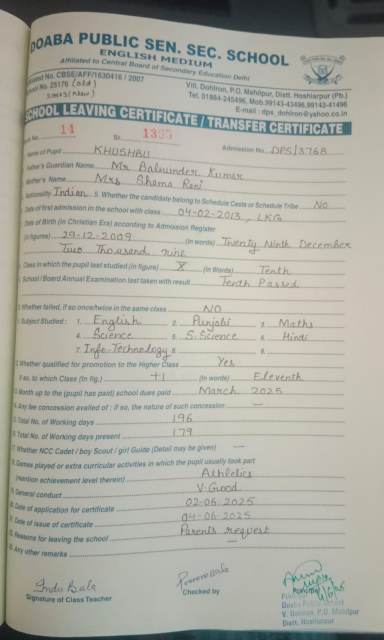 DOABA PUBLIC SEN. SEC. SCHOOL
ENGLISH MEDIUM
Affiliated to Central Board of Secondary Education Delhi
No. CBSE/AFF/1630416 / 2007
Vill. Dohlron, P.O. Mahilpur, Distt. Hoshiarpur (Pb.)
No. 25176 (old)
Tel. 01884-245496, Mob.99143-43496,99143-41496
(New)
E-mail : dps_dohlron@yahoo.co.in
SCHOOL LEAVING CERTIFICATE / TRANSFER CERTIFICATE
No. 14 Sr. Admission No. DPS/3768
Name of Pupil KHUSHBU
Father's Guardian Name Mr Balwinder Kumar
Mother's Name Mrs Shama Rani
Nationality Indian 5. Whether the candidate belong to Schedule Caste or Schedule Tribe NO
Date of first admission in the school with class 04-02-2013, LKG
Date of Birth (in Christian Era) according to Admission Register
(in figures) 29-12-2009 (in words) Twenty Ninth December
Two Thousand nine
Class in which the pupil last studied (in figure) X (in Words) Tenth
School / Board Annual Examination last taken with result Tenth Passed
Whether failed, if so once/twice in the same class NO
Subject Studied : 1. English 2. Punjabi 3. Maths
4. Science 5. S.Science 6. Hindi
7. Info. Technology 8. 9.
Whether qualified for promotion to the Higher Class Yes
if so, to which Class (in fig.) +1 (in words) Eleventh
Month up to the (pupil has paid) school dues paid March 2025
Any fee concession availed of : if so, the nature of such concession —
Total No. of Working days 196
Total No. of Working days present 179
Whether NCC Cadet / boy Scout / girl Guide (Detail may be given) —
Games played or extra curricular activities in which the pupil usually took part
(mention achievement level therein) Athletics
General conduct V.Good
Date of application for certificate 02-06-2025
Date of issue of certificate 04-06-2025
Reasons for leaving the school Parents request
Any other remarks —
Indu Bala
Signature of Class Teacher
Checked by
Doaba Public School
V. Dohlron, P.O. Mahilpur
Distt. Hoshiarpur